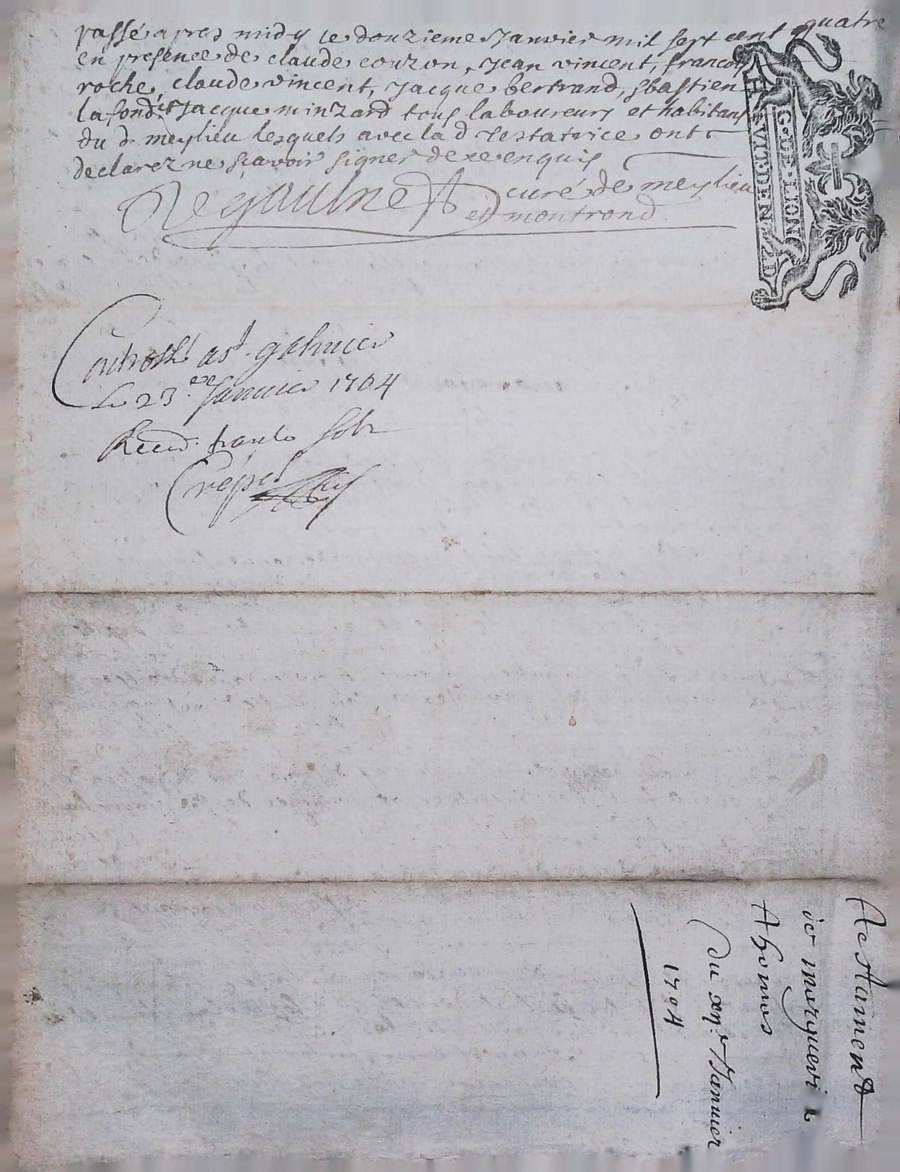 passé apres midy le douzieme Janvier mil sept cent quatre
en presence de claude couzon, Jean vincent, francois
roche, claude vincent, Jacque bertrand, sbastien
la fond et Jacque minzard tous laboureurs et habitans
du d. meylieu lesquels avec la d testatrice ont
declarez ne scavoir signer de ce enquis
curé de meylieu
et montrond
G. DE LION
HVIT DEN 2D
Controllé a st galmier
Le 23.e Janvier 1704
Receu
Crépet
Testament
de Marguerite
Thomas
du Janvier
1704